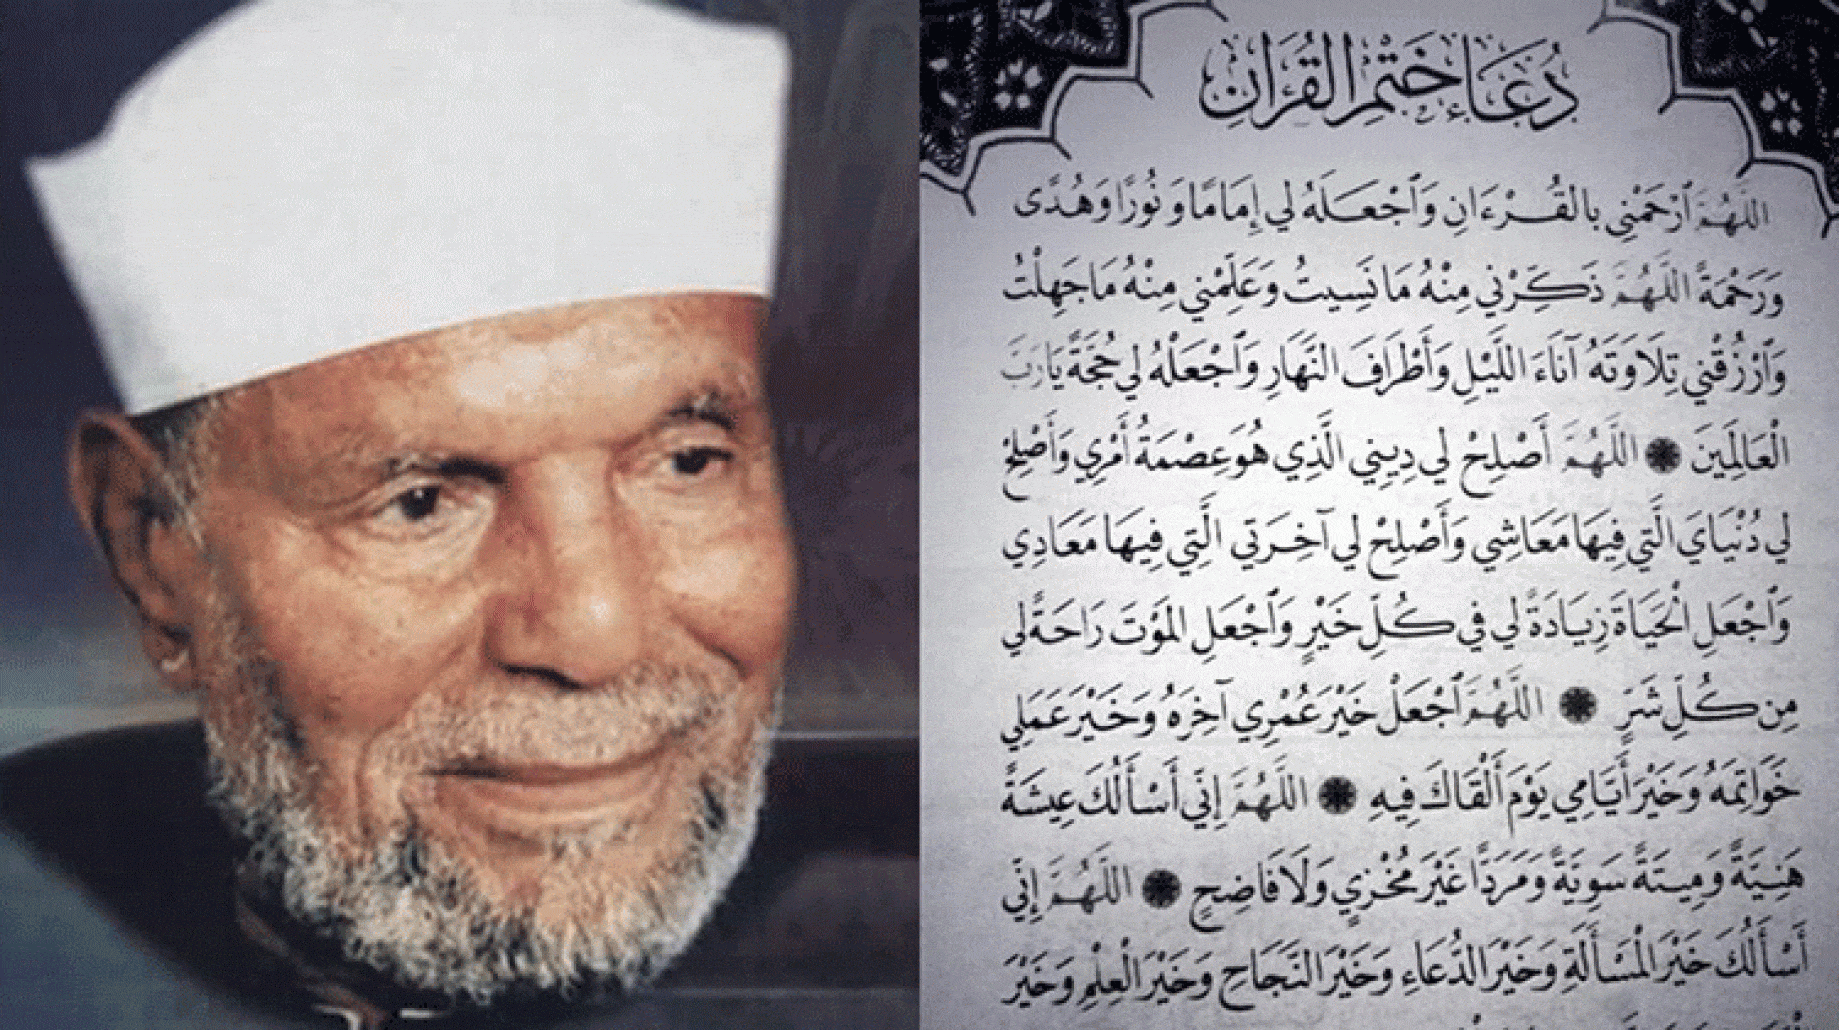 دُعَاءُ خَتْمِ الْقُرْآنِ
اللَّهُمَّ ٱرْحَمْنِي بِالْقُرْءَانِ وَٱجْعَلْهُ لِي إِمَامًا وَنُورًا وَهُدًى
وَرَحْمَةً اللَّهُمَّ ذَكِّرْنِي مِنْهُ مَا نَسِيتُ وَعَلِّمْنِي مِنْهُ مَا جَهِلْتُ
وَٱرْزُقْنِي تِلَاوَتَهُ آنَاءَ اللَّيْلِ وَأَطْرَافَ النَّهَارِ وَٱجْعَلْهُ لِي حُجَّةً يَا رَبَّ
الْعَالَمِينَ اللَّهُمَّ أَصْلِحْ لِي دِينِي الَّذِي هُوَ عِصْمَةُ أَمْرِي وَأَصْلِحْ
لِي دُنْيَايَ الَّتِي فِيهَا مَعَاشِي وَأَصْلِحْ لِي آخِرَتِي الَّتِي فِيهَا مَعَادِي
وَٱجْعَلِ الْحَيَاةَ زِيَادَةً لِي فِي كُلِّ خَيْرٍ وَٱجْعَلِ الْمَوْتَ رَاحَةً لِي
مِن كُلِّ شَرٍّ اللَّهُمَّ ٱجْعَلْ خَيْرَ عُمْرِي آخِرَهُ وَخَيْرَ عَمَلِي
خَوَاتِمَهُ وَخَيْرَ أَيَّامِي يَوْمَ أَلْقَاكَ فِيهِ اللَّهُمَّ إِنِّي أَسْأَلُكَ عِيشَةً
هَنِيَّةً وَمِيتَةً سَوِيَّةً وَمَرَدًّا غَيْرَ مُخْزِي وَلَا فَاضِحٍ اللَّهُمَّ إِنِّي
أَسْأَلُكَ خَيْرَ الْمَسْأَلَةِ وَخَيْرَ الدُّعَاءِ وَخَيْرَ النَّجَاحِ وَخَيْرَ الْعِلْمِ وَخَيْرَ